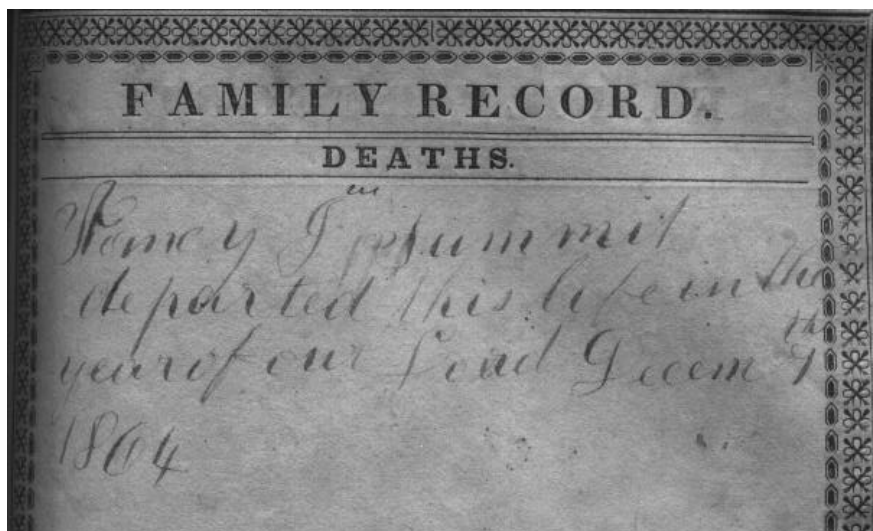 FAMILY RECORD.
DEATHS.
Nancy J Summit
departed this life in the
year of our Lord Decem 7 the
1864